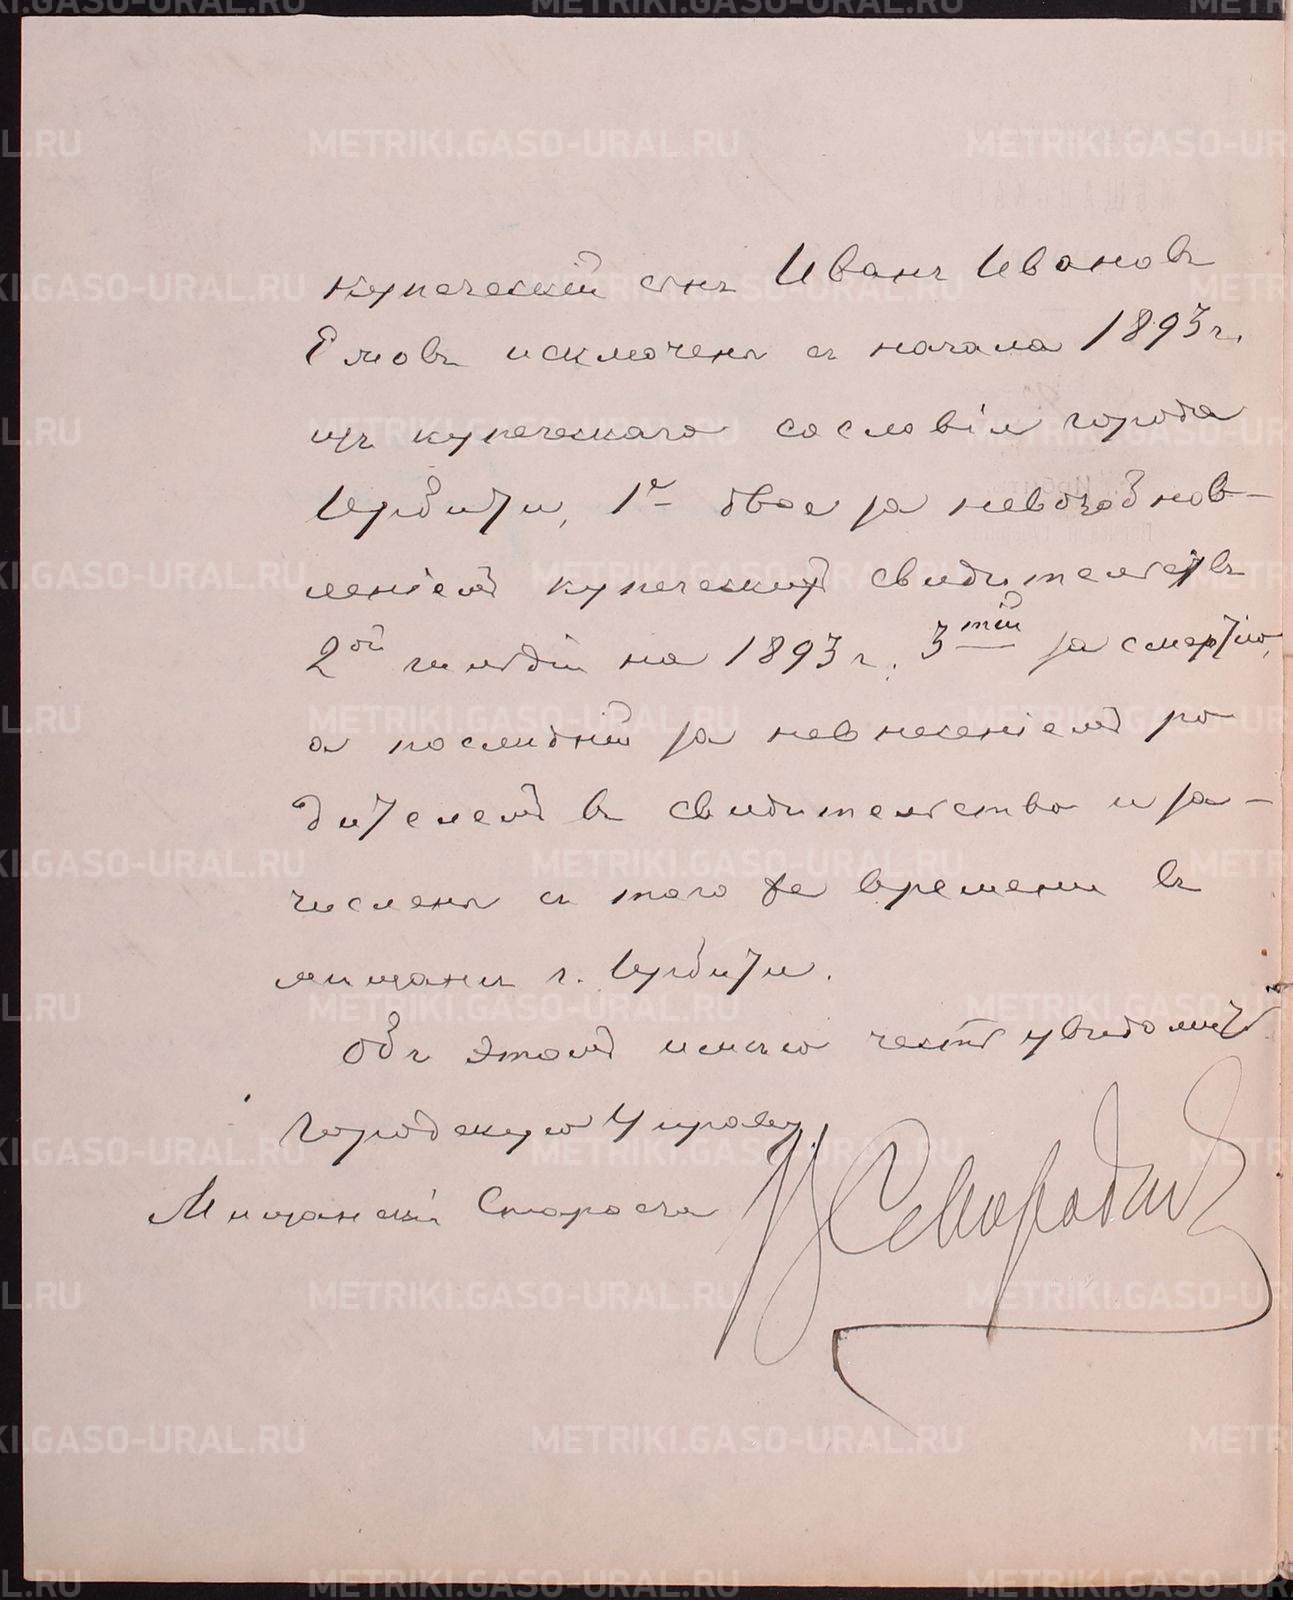 купеческій сынъ Иванъ Ивановъ
Емовъ исключены съ начала 1893 г.
изъ купеческаго сословія города
Ирбити, 1е двое за невозобнов-
леніемъ купеческихъ свидѣтельствъ
2ой гильдіи на 1893 г. 3тій за смертію,
а послѣдній за невнесеніемъ ро
дителемъ въ свидѣтельство и за-
числены съ того же времени въ
мѣщане г. Ирбити.
Объ этомъ имѣю честь увѣдомить
Городскую Управу.
Мѣщанскій Староста
METRIKI.GASO-URAL.RU